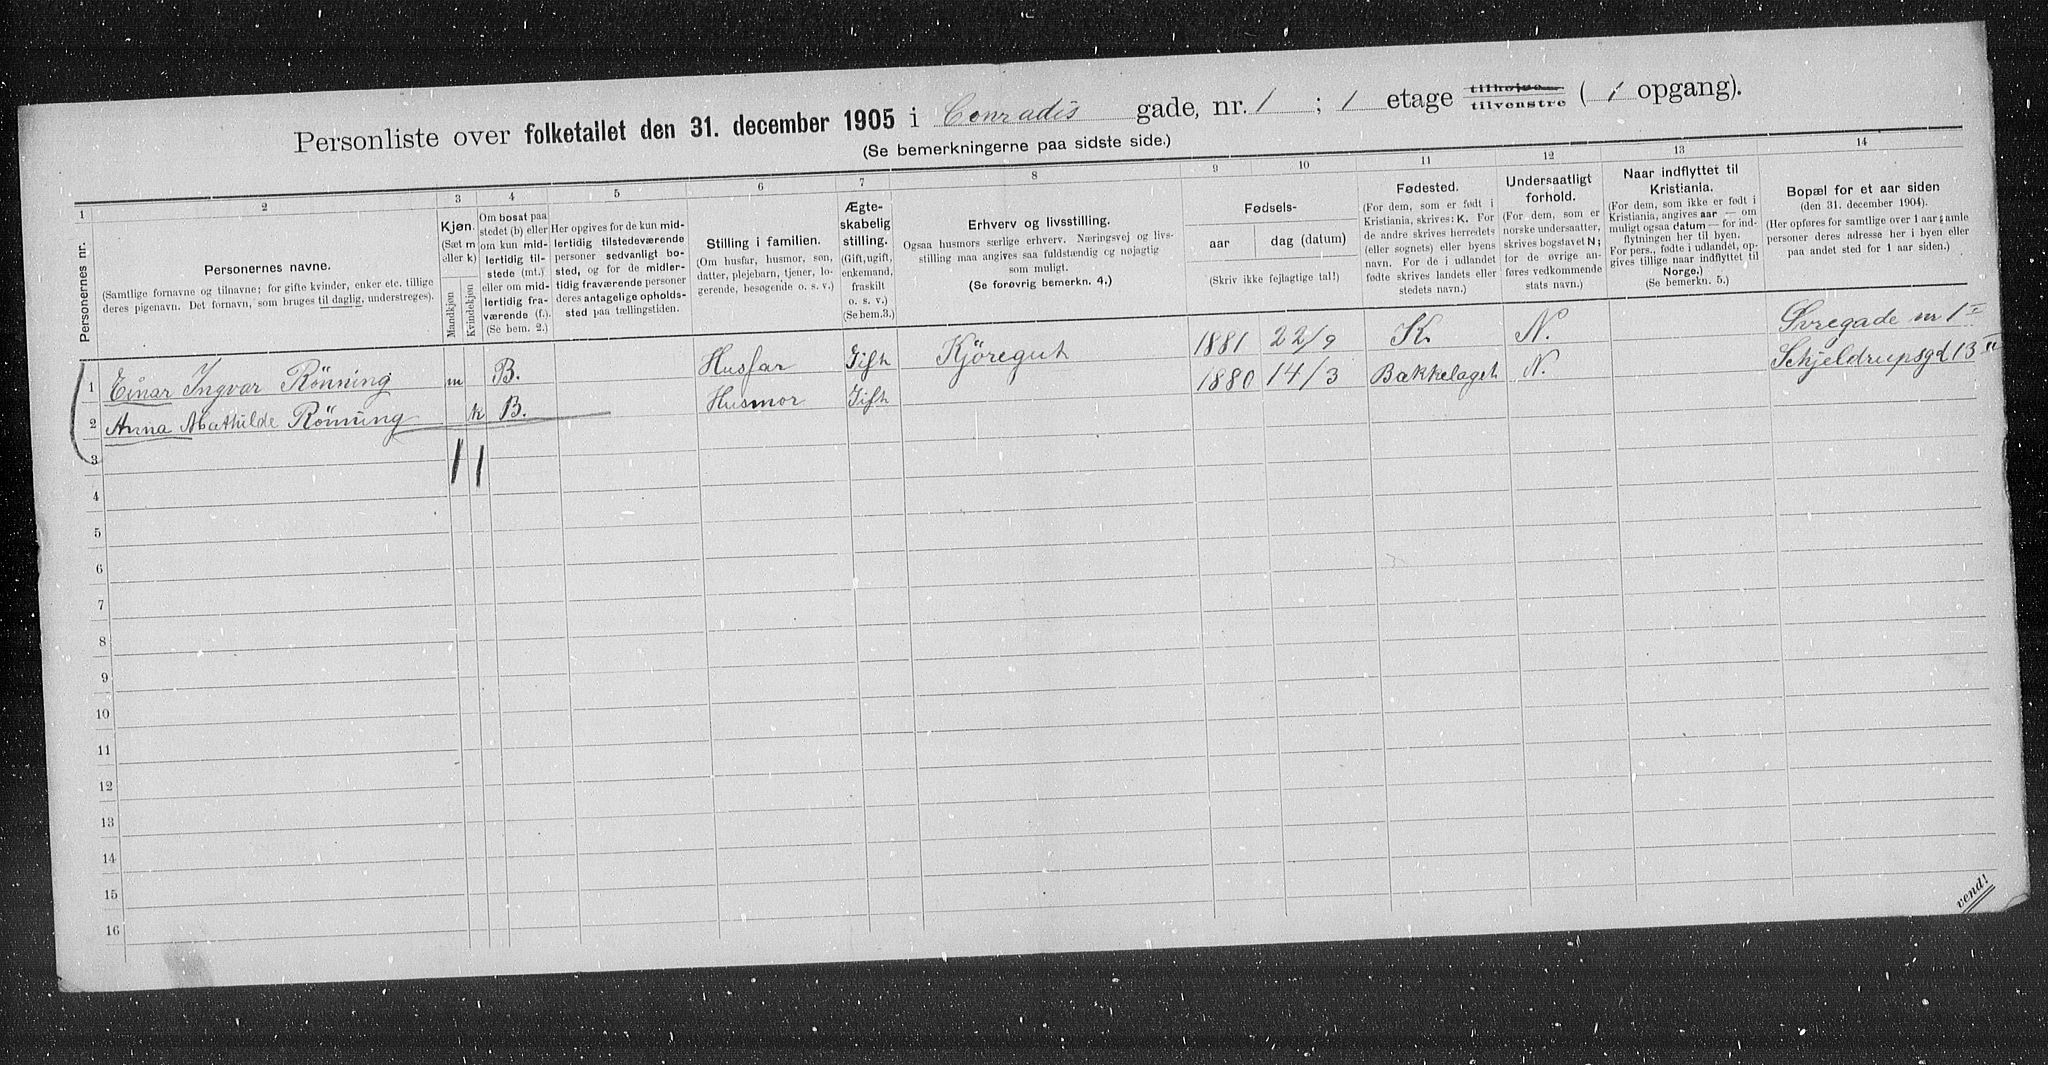 Personliste over folketallet den 31. december 1905 i Conradis gade, nr. 1 ; 1 etage tilhøjre tilvenstre ( 1 opgang).
(Se bemerkningerne paa sidste side.)
1 2 3 4 5 6 7 8 9 10 11 12 13 14
Personernes nr.
Personernes navne.
(Samtlige fornavne og tilnavne; for gifte kvinder, enker etc. tillige
deres pigenavn. Det fornavn, som bruges til daglig, understreges).
Kjøn.
(Sæt m
eller k)
Mandkjøn
Kvindekjøn
Om bosat paa
stedet (b) eller
om kun mid-
lertidig til-
stede (mt.)
eller om mid-
lertidig fra-
værende (f.).
(Se bem. 2.)
Her opgives for de kun mid-
lertidig tilstedeværende
personer sedvanligt bo-
sted, og for de midler-
tidig fraværende personer
deres antagelige opholds-
sted paa tællingstiden.
Stilling i familien.
(Om husfar, husmor, søn,
datter, plejebarn, tjener, lo-
gerende, besøgende o. s. v.)
Ægte-
skabelig
stilling.
(Gift, ugift,
enkemand,
fraskilt
o. s. v.)
(Se bem. 3.)
Erhverv og livsstilling.
Ogsaa husmors særlige erhverv. Næringsvej og livs-
stilling maa angives saa fuldstændig og nøjagtig
som muligt.
(Se forøvrig bemerkn. 4.)
Fødsels-
aar
dag (datum)
(Skriv ikke fejlagtige tal!)
Fødested.
(For dem, som er født i
Kristiania, skrives: K. For
de andre skrives herredets
(eller sognets) eller byens
navn. For de i udlandet
fødte skrives landets eller
stedets navn.)
Undersaatligt
forhold.
(For dem, som er
norske undersaatter,
skrives bogstavet N;
for de øvrige an-
føres vedkommende
stats navn.)
Naar indflyttet til
Kristiania.
(For dem, som ikke er født i
Kristiania, angives aar — om
muligt ogsaa datum — for ind-
flytningen her til byen.
For pers., fødte i udlandet, op-
gives tillige naar indflyttet til
Norge.)
(Se bemerkn. 5.)
Bopæl for et aar siden
(den 31. december 1904).
(Her opføres for samtlige over 1 aar gamle
personer deres adresse her i byen eller
paa andet sted for 1 aar siden.)
1 Einar Ingvar Rönning m B. Husfar Gift Kjöregut 1881 22/9 K. N. Svregade nr 1 I
2 Anna Mathilde Rönning k B. Husmor Gift 1880 14/3 Bakkelaget N. Schjeldrupsgd 13 II
3 1 1
4
5
6
7
8
9
10
11
12
13
14
15
16
vend!